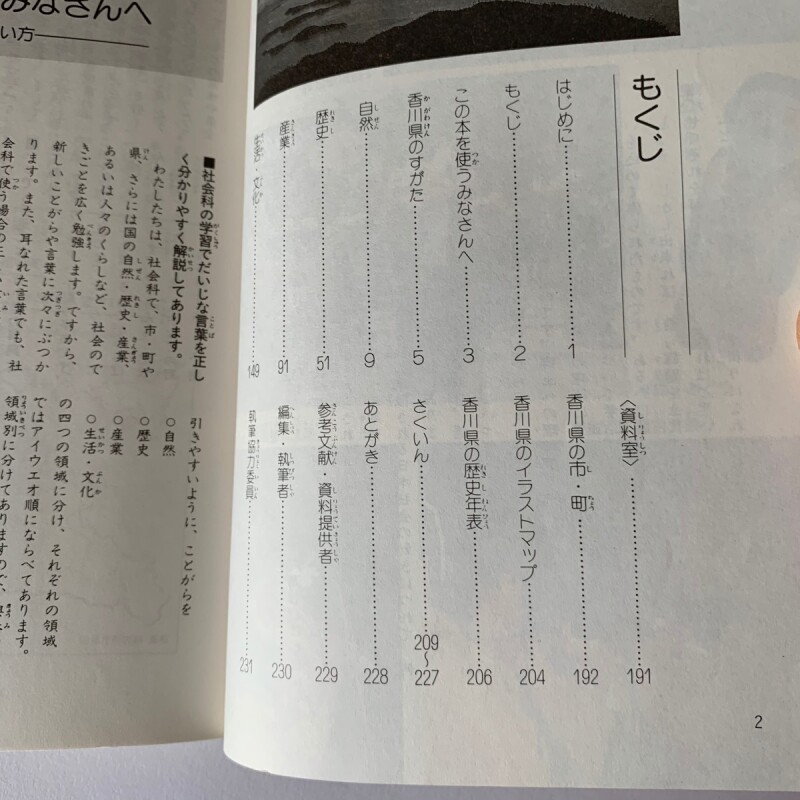 もくじ
はじめに 1
もくじ 2
この本を使うみなさんへ 3
香川県のすがた 5
自然 9
歴史 51
産業 91
生活・文化 149
〈資料室〉 191
香川県の市・町 192
香川県のイラストマップ 204
香川県の歴史年表 206
さくいん 209〜227
あとがき 228
参考文献・資料提供者 229
編集・執筆者 230
執筆協力委員 231
2
みなさんへ
い方
■社会科の学習でだいじな言葉を正し
く分かりやすく解説してあります。
わたしたちは、社会科で、市・町や
県、さらには国の自然・歴史・産業、
あるいは人々のくらしなど、社会ので
きごとを広く勉強します。ですから、
新しいことがらや言葉に次々にぶつか
ります。また、耳なれた言葉でも、社
会科で使う場合の正し
引きやすいように、ことがらを
○自然
○歴史
○産業
○生活・文化
の四つの領域に分け、それぞれの領域
ではアイウエオ順にならべてあります。
領域別に分けてありますので、